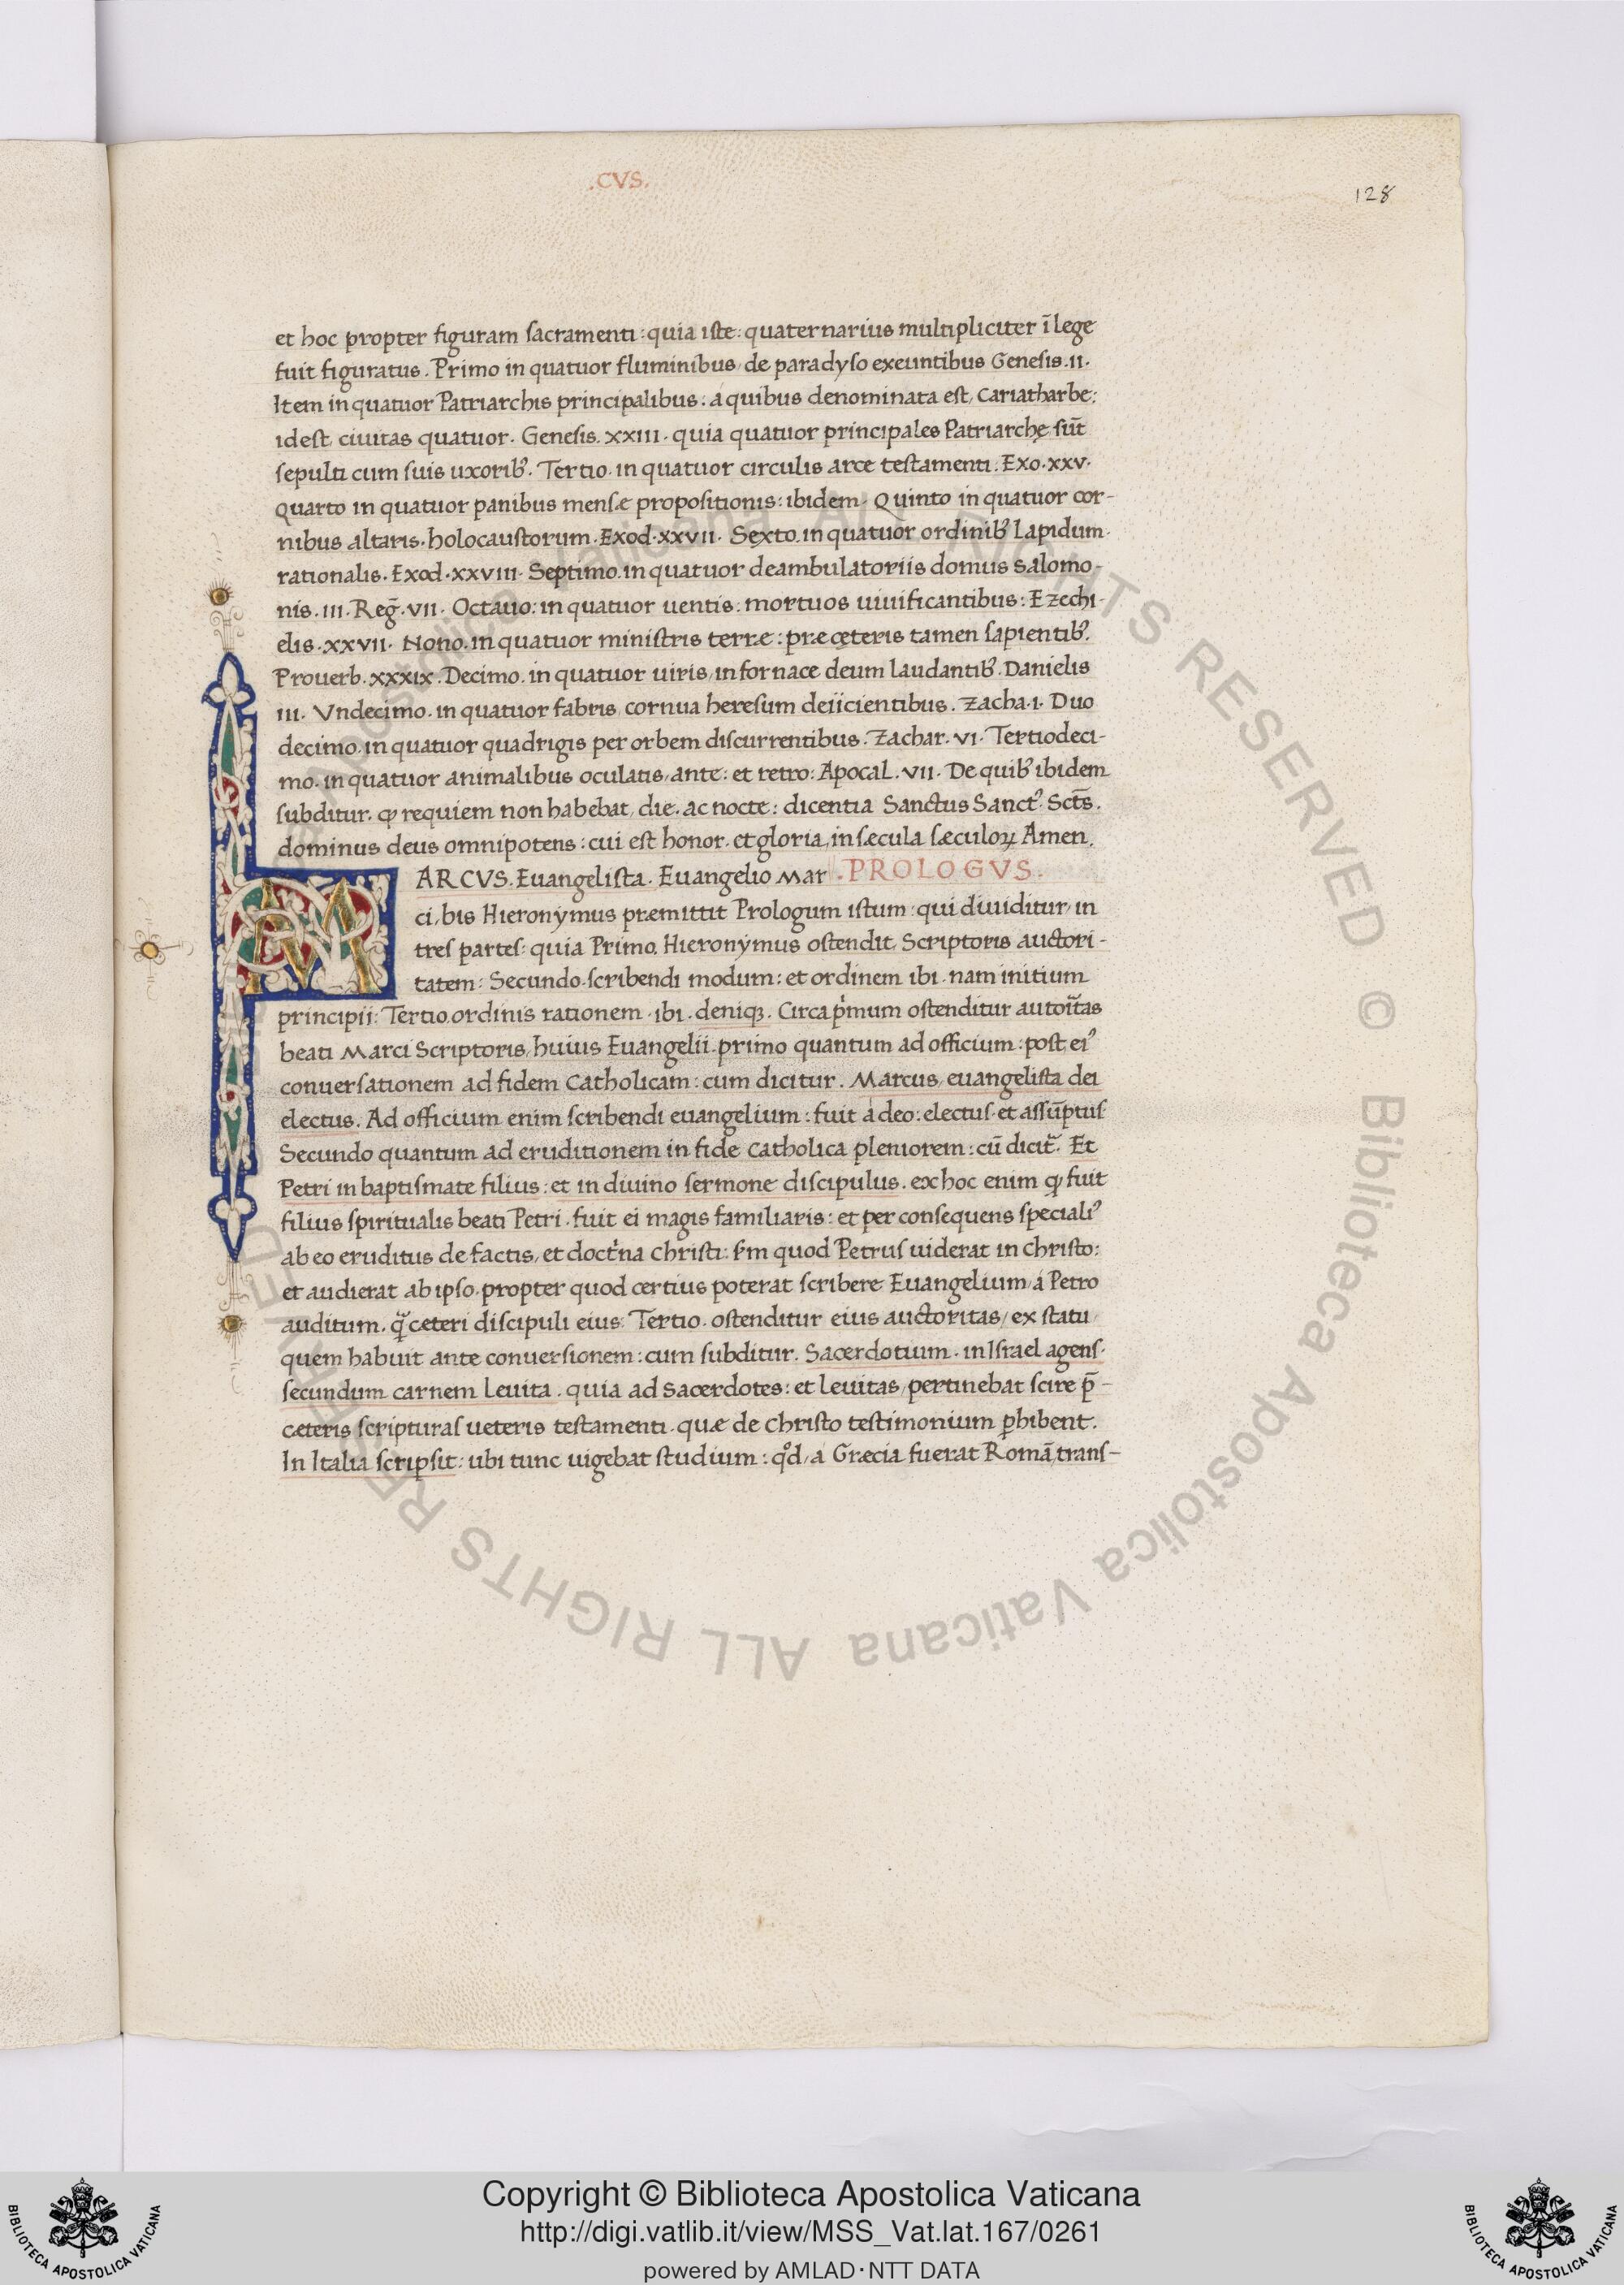 .CVS.
128
et hoc propter figuram sacramenti: quia iste: quaternarius multipliciter ī lege
fuit figuratus. Primo in quatuor fluminibus, de paradyso exeuntibus Genesis. II.
Item in quatuor Patriarchis principalibus: a quibus denominata est, Cariatharbe:
id est, ciuitas quatuor. Genesis. XXIII. quia quatuor principales Patriarchę sūt
sepulti cum suis uxorib⁹. Tertio. in quatuor circulis arce testamenti. Exo. XXV.
Quarto in quatuor panibus mensæ propositionis: ibidem. Quinto in quatuor cor-
nibus altaris. holocaustorum. Exod. XXVII. Sexto. in quatuor ordinib⁹ Lapidum.
rationalis. Exod. XXVIII. Septimo. in quatuor deambulatoriis domus salomo-
nis. III. Reg̃. VII. Octauo: in quatuor uentis: mortuos uiuificantibus: Ezechi-
elis. XXVII. Nono. in quatuor ministris terræ: præ cęteris tamen sapientib⁹.
Prouerb. XXXIX. Decimo. in quatuor uiris, in fornace deum laudantib⁹. Danielis
III. Vndecimo. in quatuor fabris, cornua heresum deiicientibus. Zacha. I. Duo
decimo. in quatuor quadrigis per orbem discurrentibus. Zachar. VI. Tertiodeci-
mo. in quatuor animalibus oculatis, ante: et retro: Apocal. VII. De quib⁹ ibidem
subditur. ꝙ requiem non habebat, die. ac nocte: dicentia Sanctus Sanct⁹. Sct̃s.
dominus deus omnipotens: cui est honor. et gloria, in sæcula sæculoꝝ Amen.
MARCVS. Euangelista. Euangelio Mar .PROLOGVS.
ci, bis Hieronymus præmittit Prologum istum: qui diuiditur, in
tres partes: quia Primo. Hieronymus ostendit, Scriptoris auctori-
tatem: Secundo. scribendi modum: et ordinem ibi. nam initium
principii: Tertio ordinis rationem. ibi. deniqꝫ. Circa p̾mum ostenditur autoĩtas
beati Marci Scriptoris, huius Euangelii. primo quantum ad officium: post ei⁹
conuersationem ad fidem Catholicam: cum dicitur. Marcus, euangelista dei
electus. Ad officium enim scribendi euangelium: fuit a deo: electus. et assũptus
Secundo quantum ad eruditionem in fide Catholica pleniorem: cũ dicit̃. Et
Petri in baptismate filius: et in diuino sermone discipulus. ex hoc enim ꝙ fuit
filius spiritualis beati Petri. fuit ei magis familiaris: et per consequens speciali⁹
ab eo eruditus de factis, et doct̾na Christi: s̃m quod Petrus uiderat in Christo:
et audierat ab ipso. propter quod certius poterat scribere Euangelium, á Petro
auditum. q̃ ceteri discipuli eius: Tertio. ostenditur eius auctoritas, ex statu,
quem habuit ante conuersionem: cum subditur. Sacerdotium. in Israel agens.
secundum carnem Leuita. quia ad Sacerdotes: et Leuitas, pertinebat scire p̃-
cæteris scripturas ueteris testamenti. quæ de Christo testimonium ꝑhibent.
In Italia scripsit: ubi tunc uigebat studium: qd̾, a Græcia fuerat Romã, trans-
Biblioteca Apostolica Vaticana ALL RIGHTS RESERVED ©
Copyright © Biblioteca Apostolica Vaticana
http://digi.vatlib.it/view/MSS_Vat.lat.167/0261
powered by AMLAD·NTT DATA
BIBLIOTECA APOSTOLICA VATICANA
BIBLIOTECA APOSTOLICA VATICANA